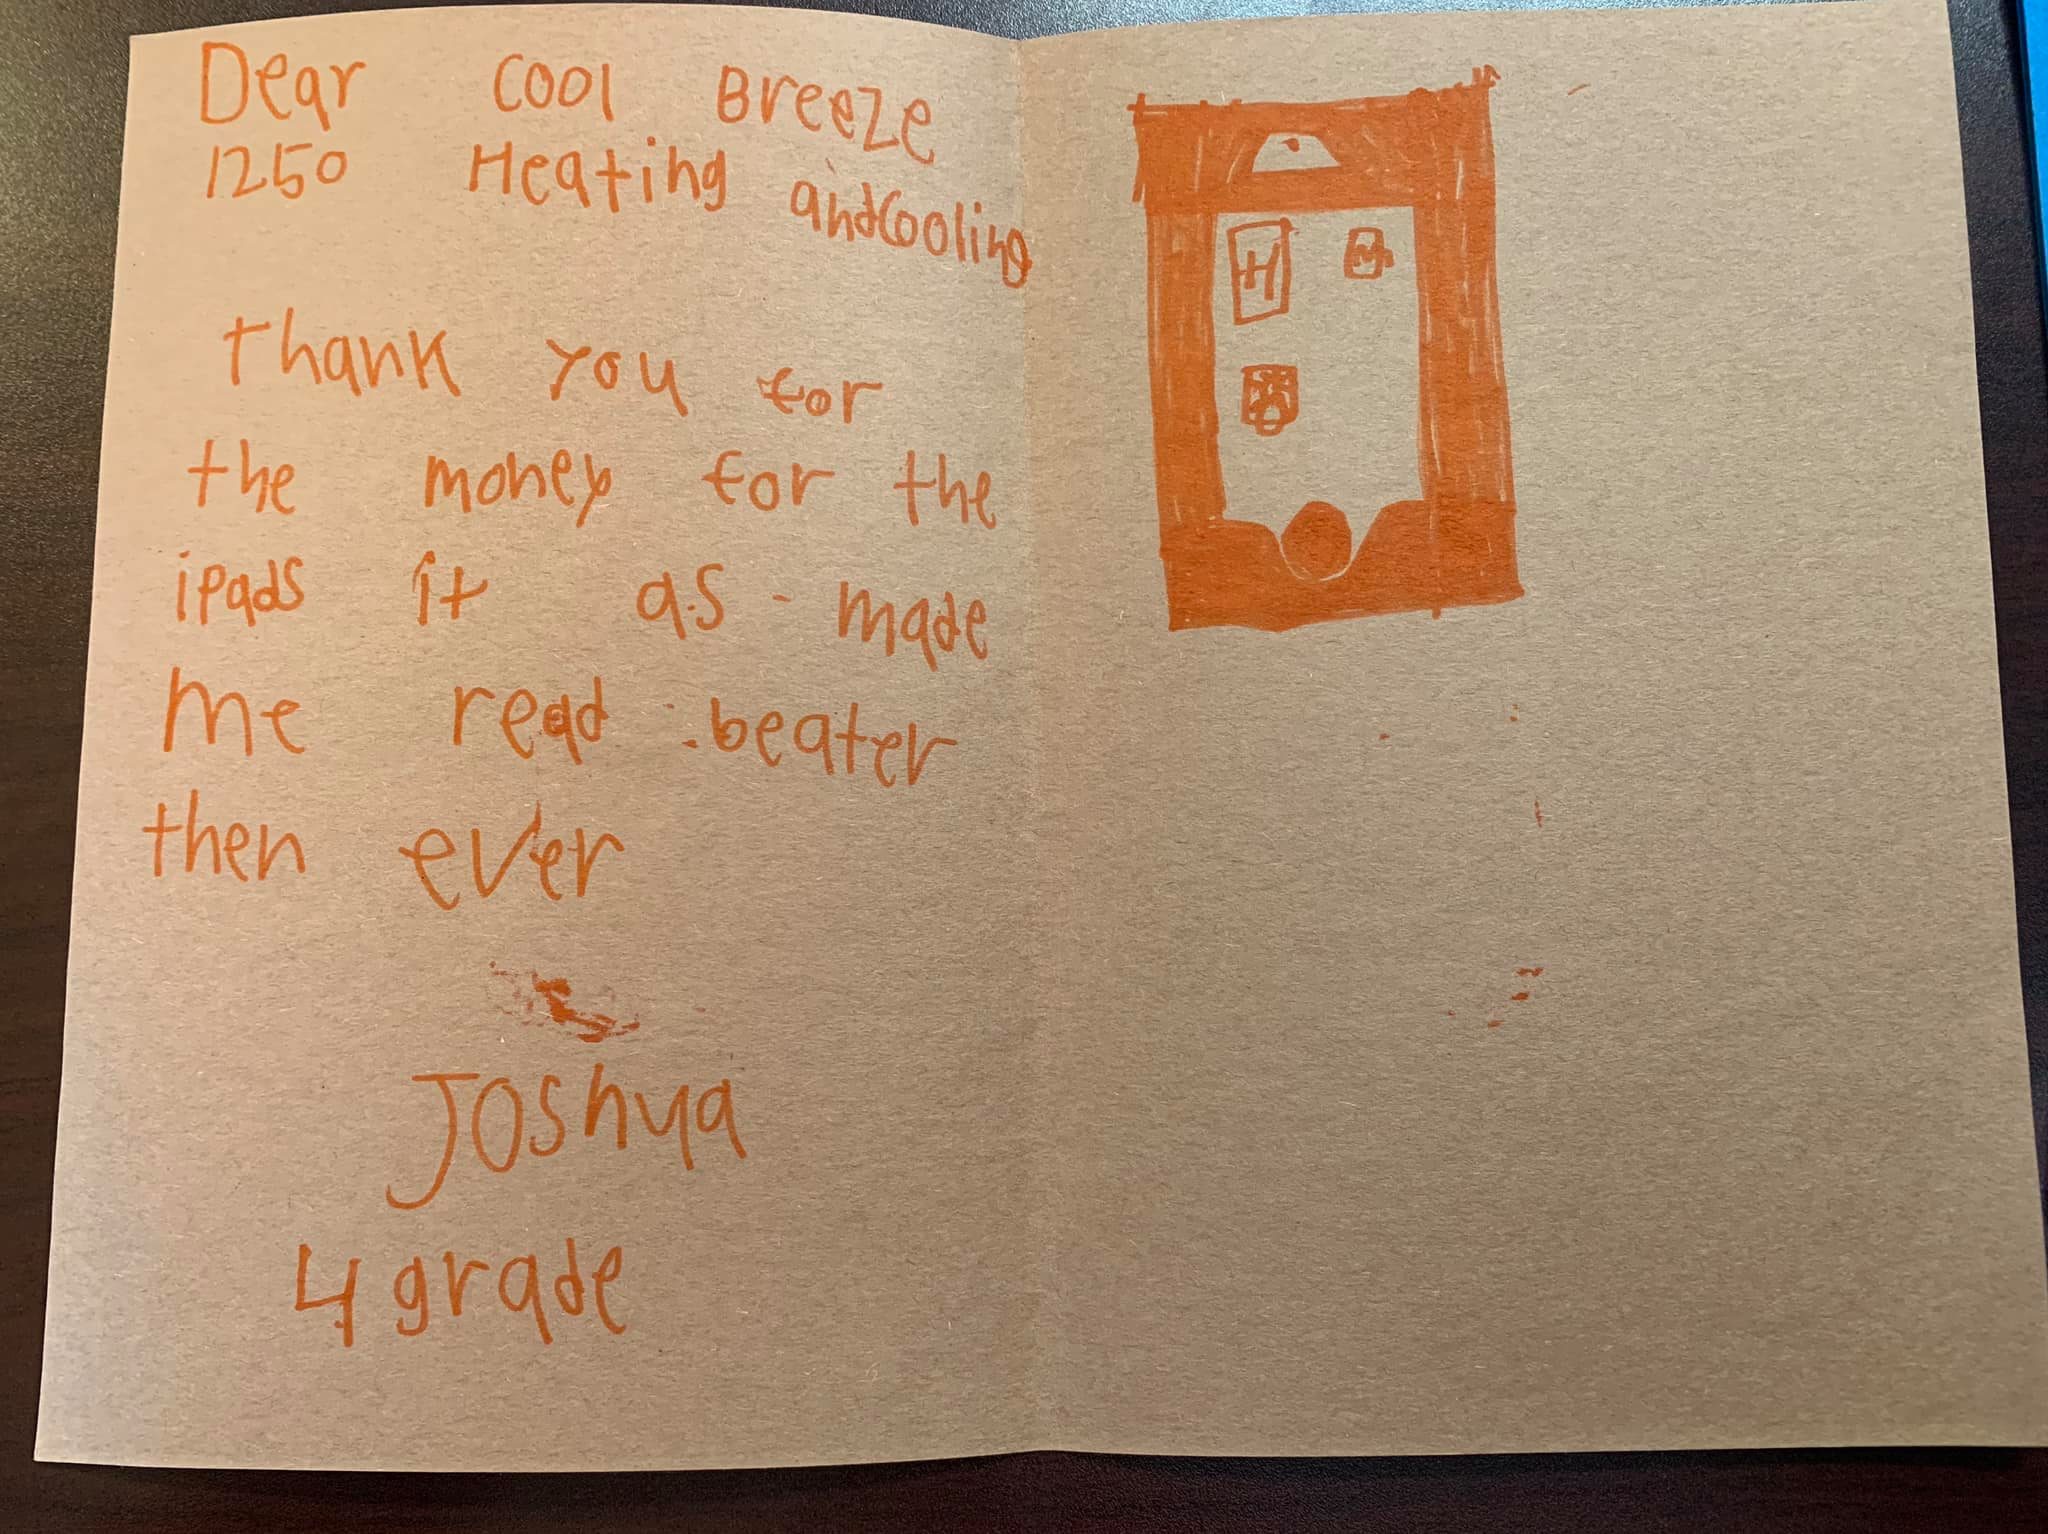 Dear cool Breeze
1250 Heating andcooling
thank you for
the money for the
ipads it as made
me read beater
then ever
Joshua
4 grade
H